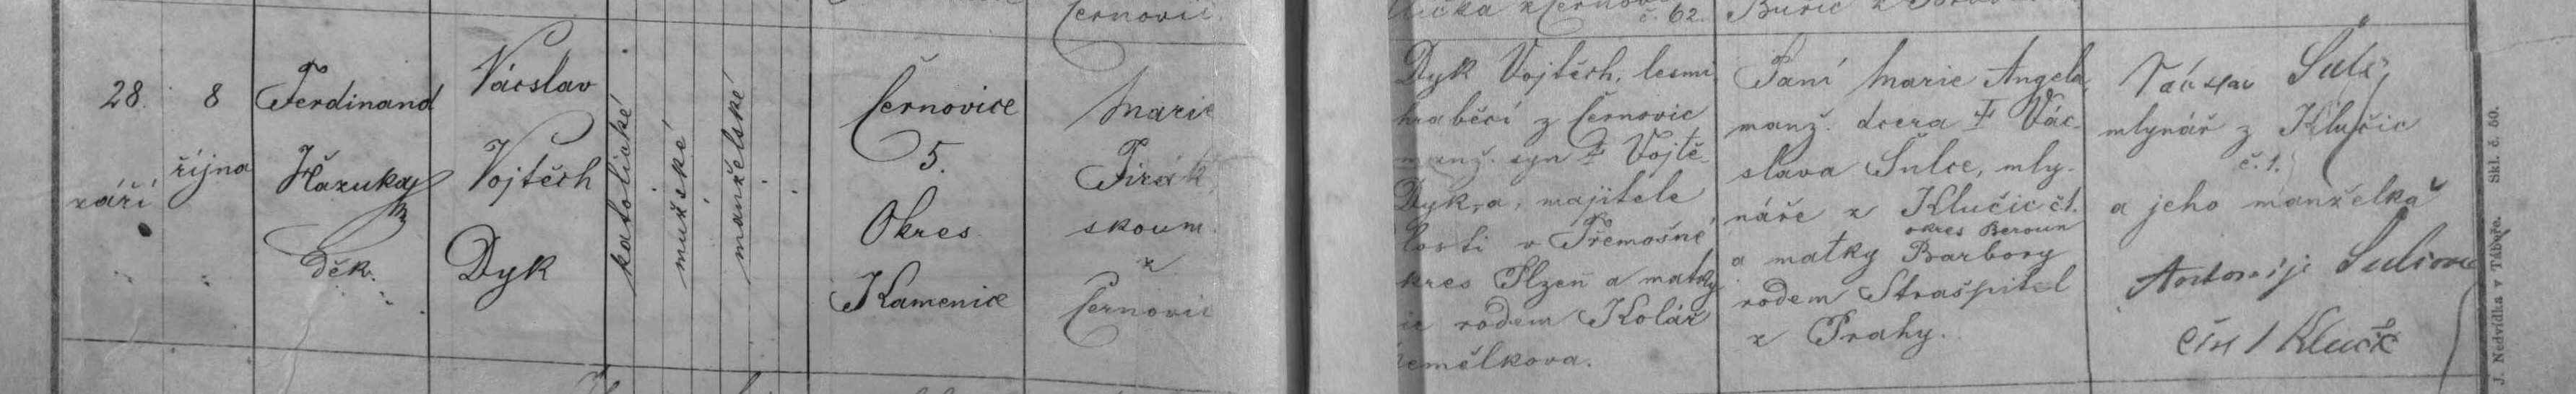 Černovic.
č. 62.
28.
září
8
října
Ferdinand
Hazuka
děk.
Vácslav
Vojtěch
Dyk
katolické
mužské
manželské
Černovice
5.
Okres
Kamenice
Marie
skoum.
z
Černovic
Dyk Vojtěch, lesní
hraběcí z Černovic
manž. syn Vojtě-
Dyka, majitele
losti v Třemošné
kres Plzeň a matky
ie rodem Kolář
Paní Marie Angela,
manž. dcera Vác-
slava Šulce, mly-
náře z Klučic č 1.
okres Beroun
a matky Barbory
rodem Strašpitel
z Prahy.
Václav Šulc,
mlynář z Klučic
č. 1.
a jeho manželka
Antonije Šulcova
čís 1 Klučic
J. Nedvídka v Táboře. Skl. č. 50.